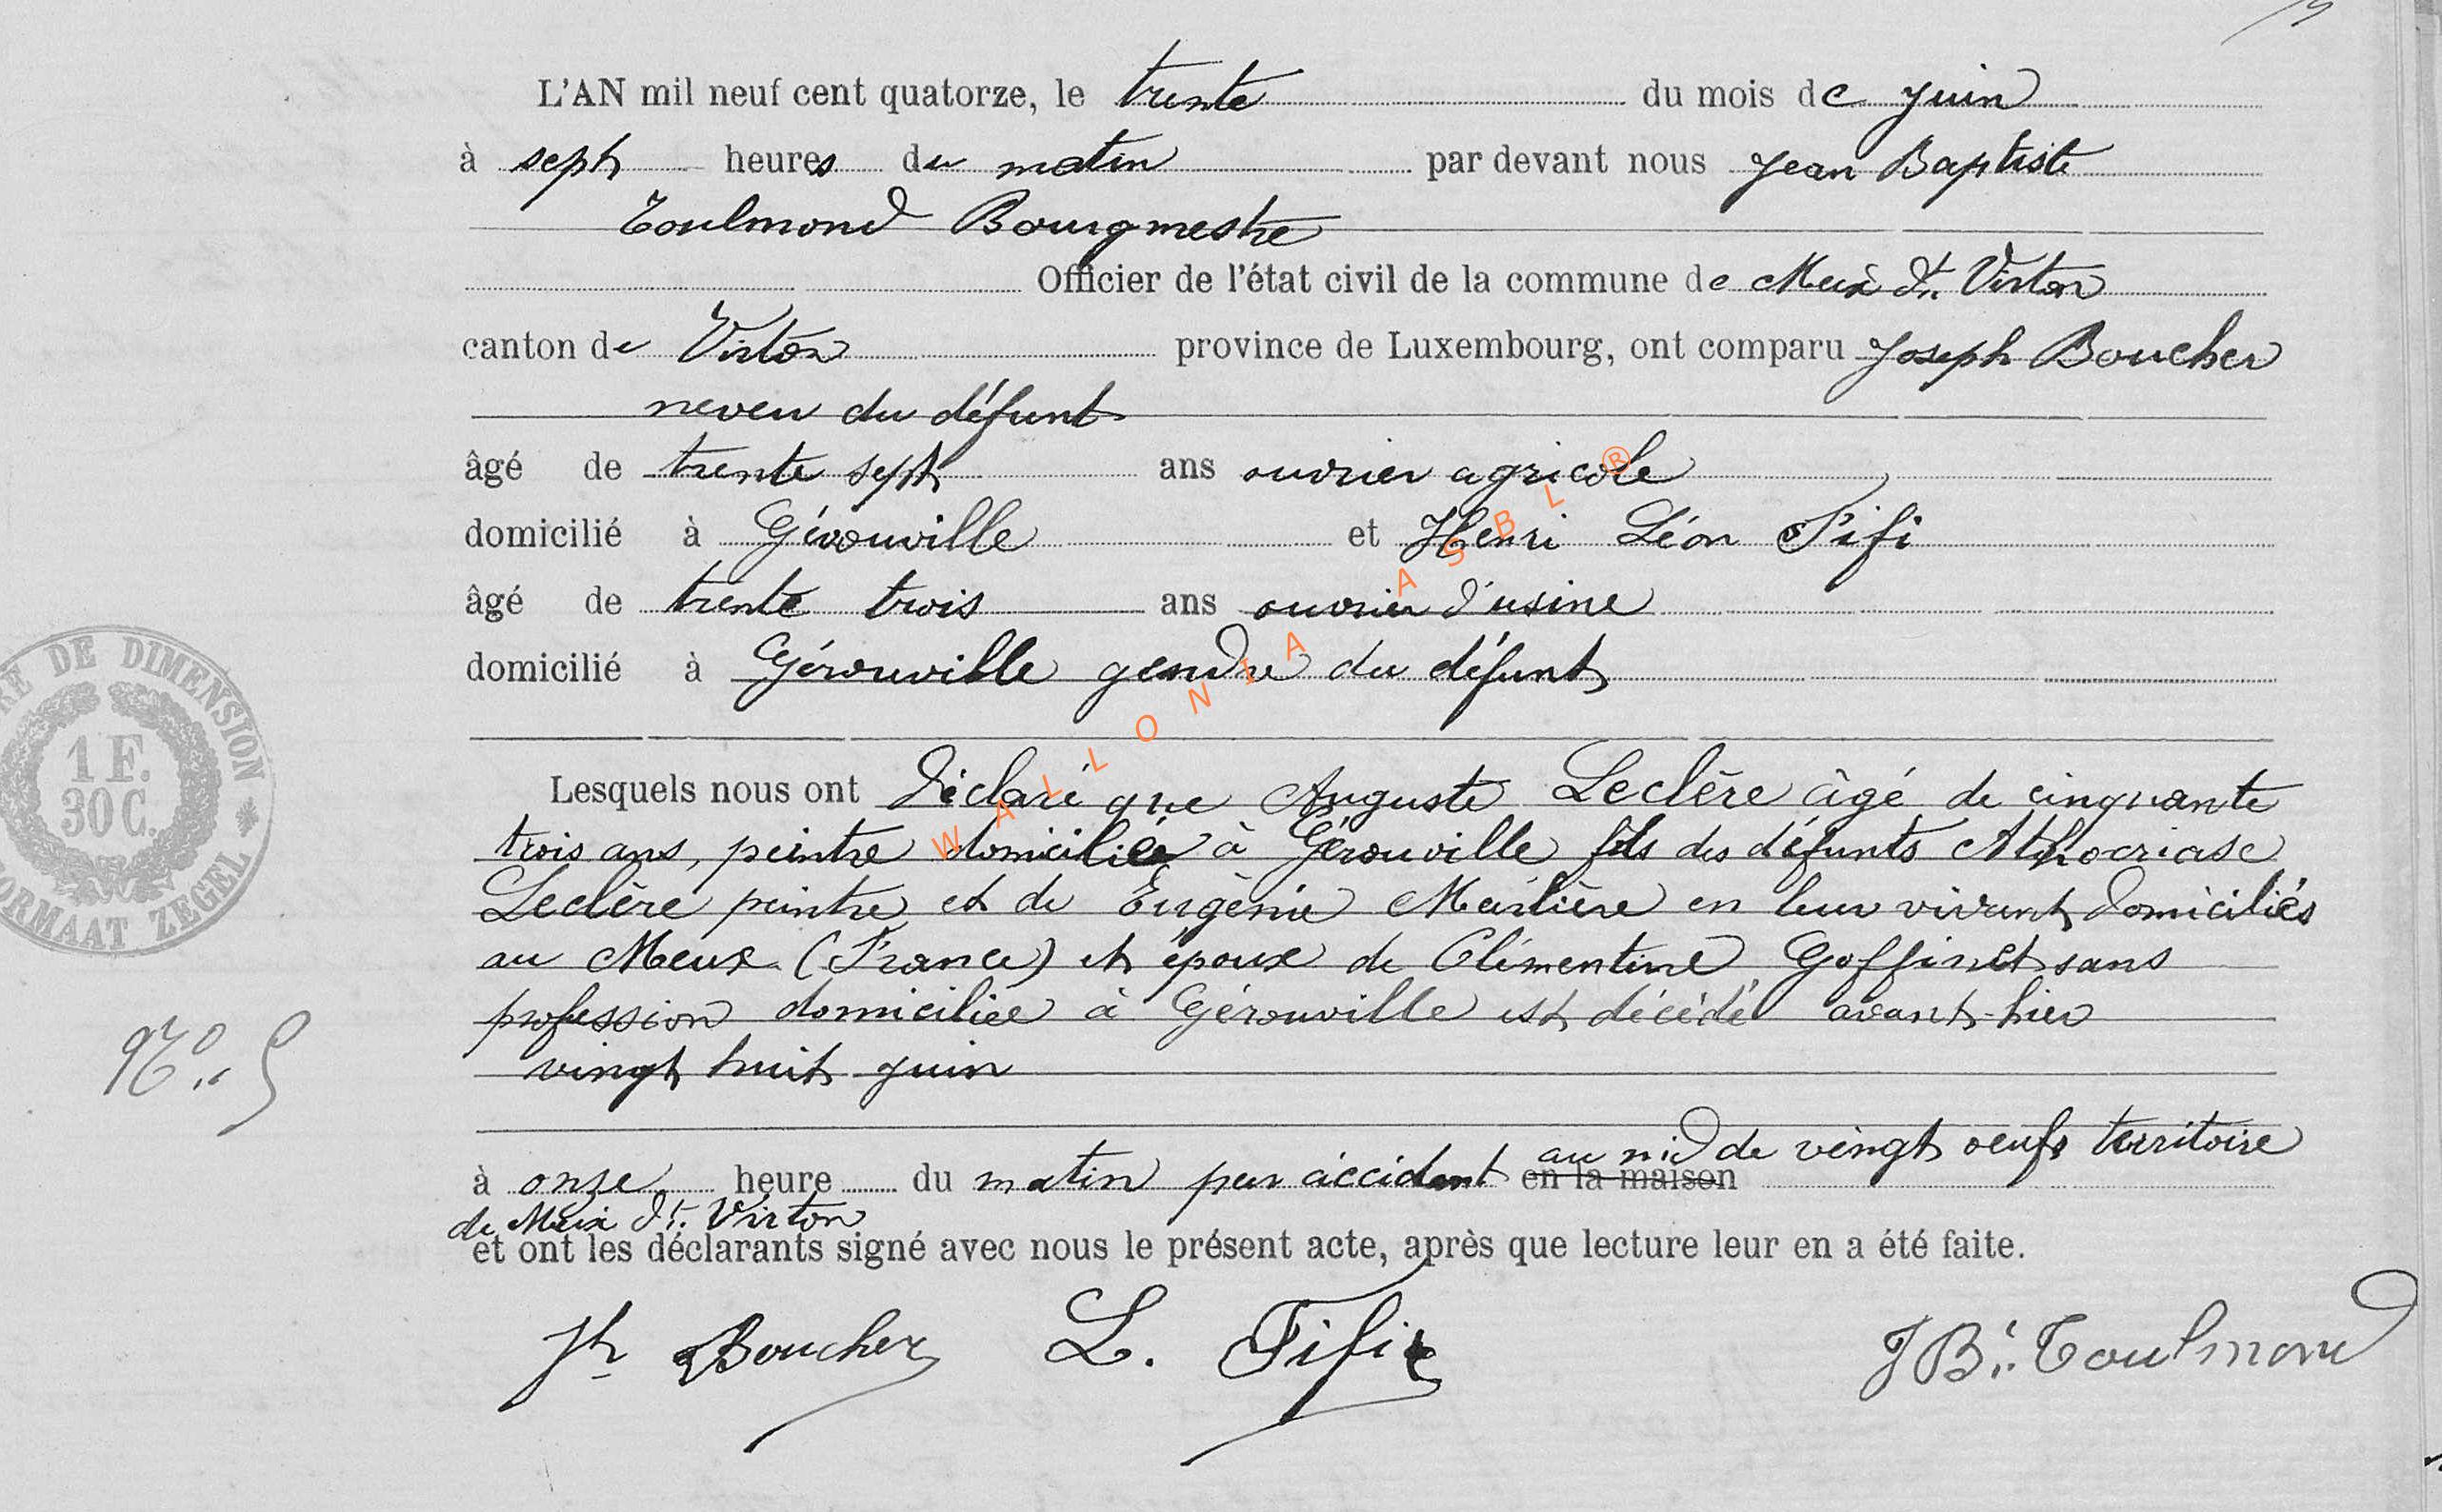 L'AN mil neuf cent quatorze, le trente du mois de juin
à sept heures du matin par devant nous Jean Baptiste
Toulmond Bourgmestre
Officier de l'état civil de la commune de Meix dt. Virton
canton de Virton province de Luxembourg, ont comparu Joseph Boucher
neveu du défunt
âgé de trente sept ans ouvrier agricole
domicilié à Gérouville et Henri Léon Fifi
âgé de trente trois ans ouvrier d'usine
domicilié à Gérouville gendre du défunt
Lesquels nous ont déclaré que Auguste Leclère âgé de cinquante
trois ans, peintre domicilié à Gérouville fils des défunts
Leclère peintre et de Eugènie en leur vivant domiciliés
au Meux (France) et époux de Clémentine Goffinet sans
profession domiciliée à Gérouville est décédé avant-hier
vingt huit juin
au nid de vingt oeufs territoire
à onze heure du matin par accident en la maison
de Meix dt. Virton
et ont les déclarants signé avec nous le présent acte, après que lecture leur en a été faite.
Jh Boucher L. Fifi JBt. Toulmond
No. 5
RE DE DIMENSION
1 F.
30 C.
ORMAAT ZEGEL
WALLONIA ASBL ®